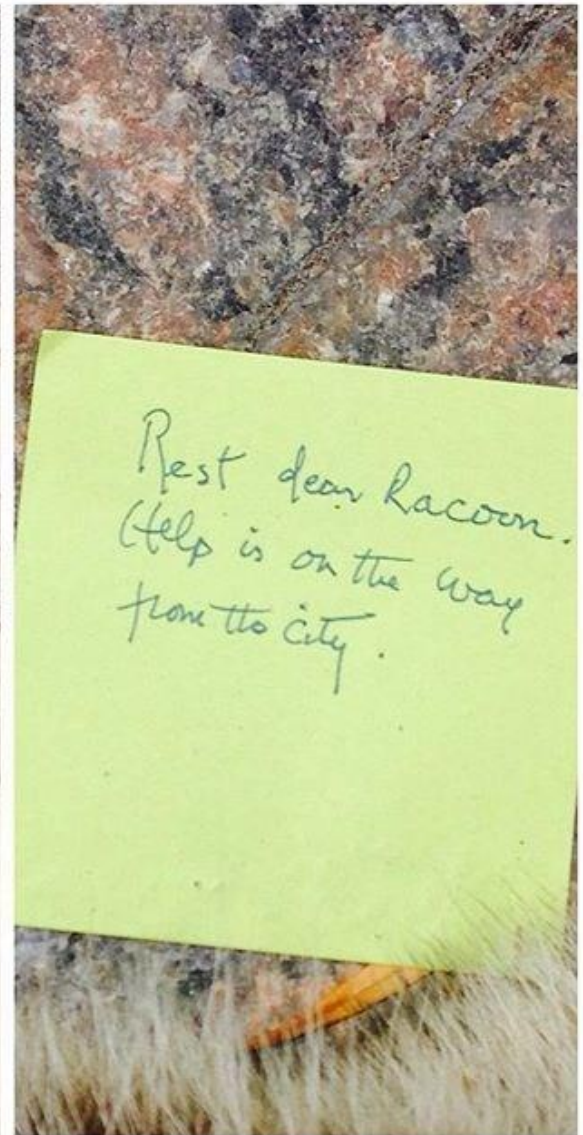 Rest dear Racoon.
Help is on the way
from the city.